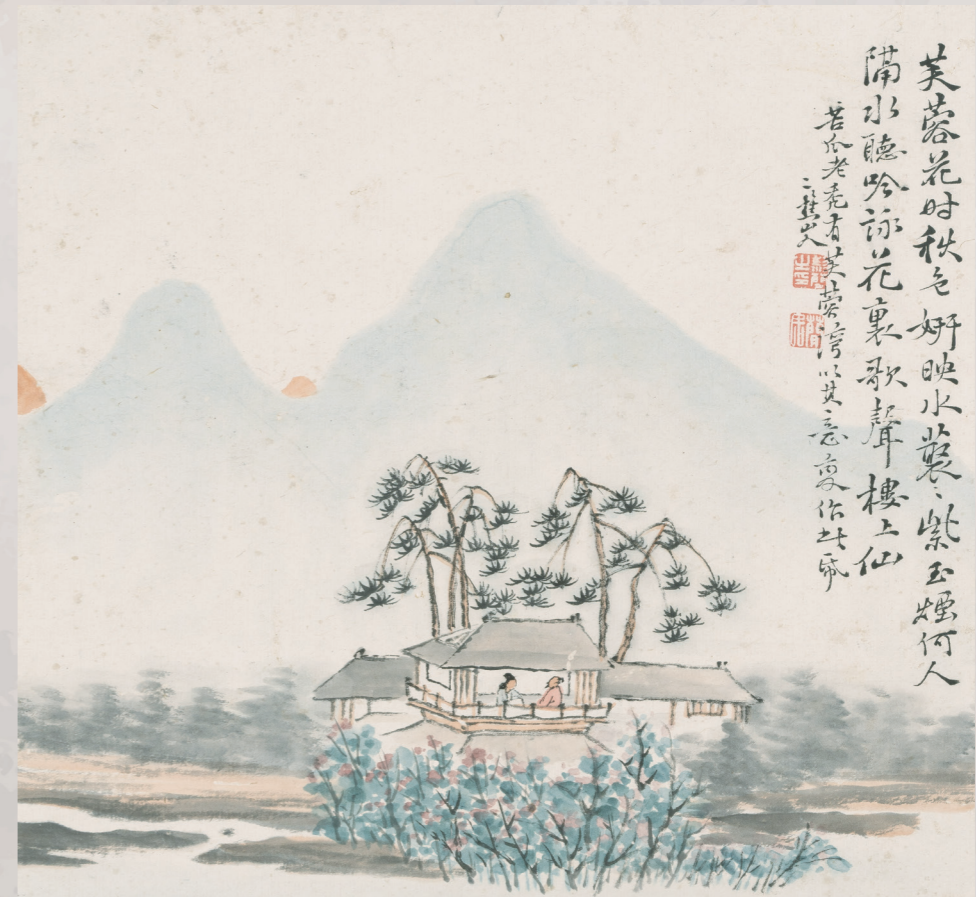 芙蓉花时秋色妍映水蘂〻紫玉煙何人
隔水聽吟詠花裏歌聲樓上仙
苦瓜老禿有芙蓉灣以其意更作此幀
二樵山人